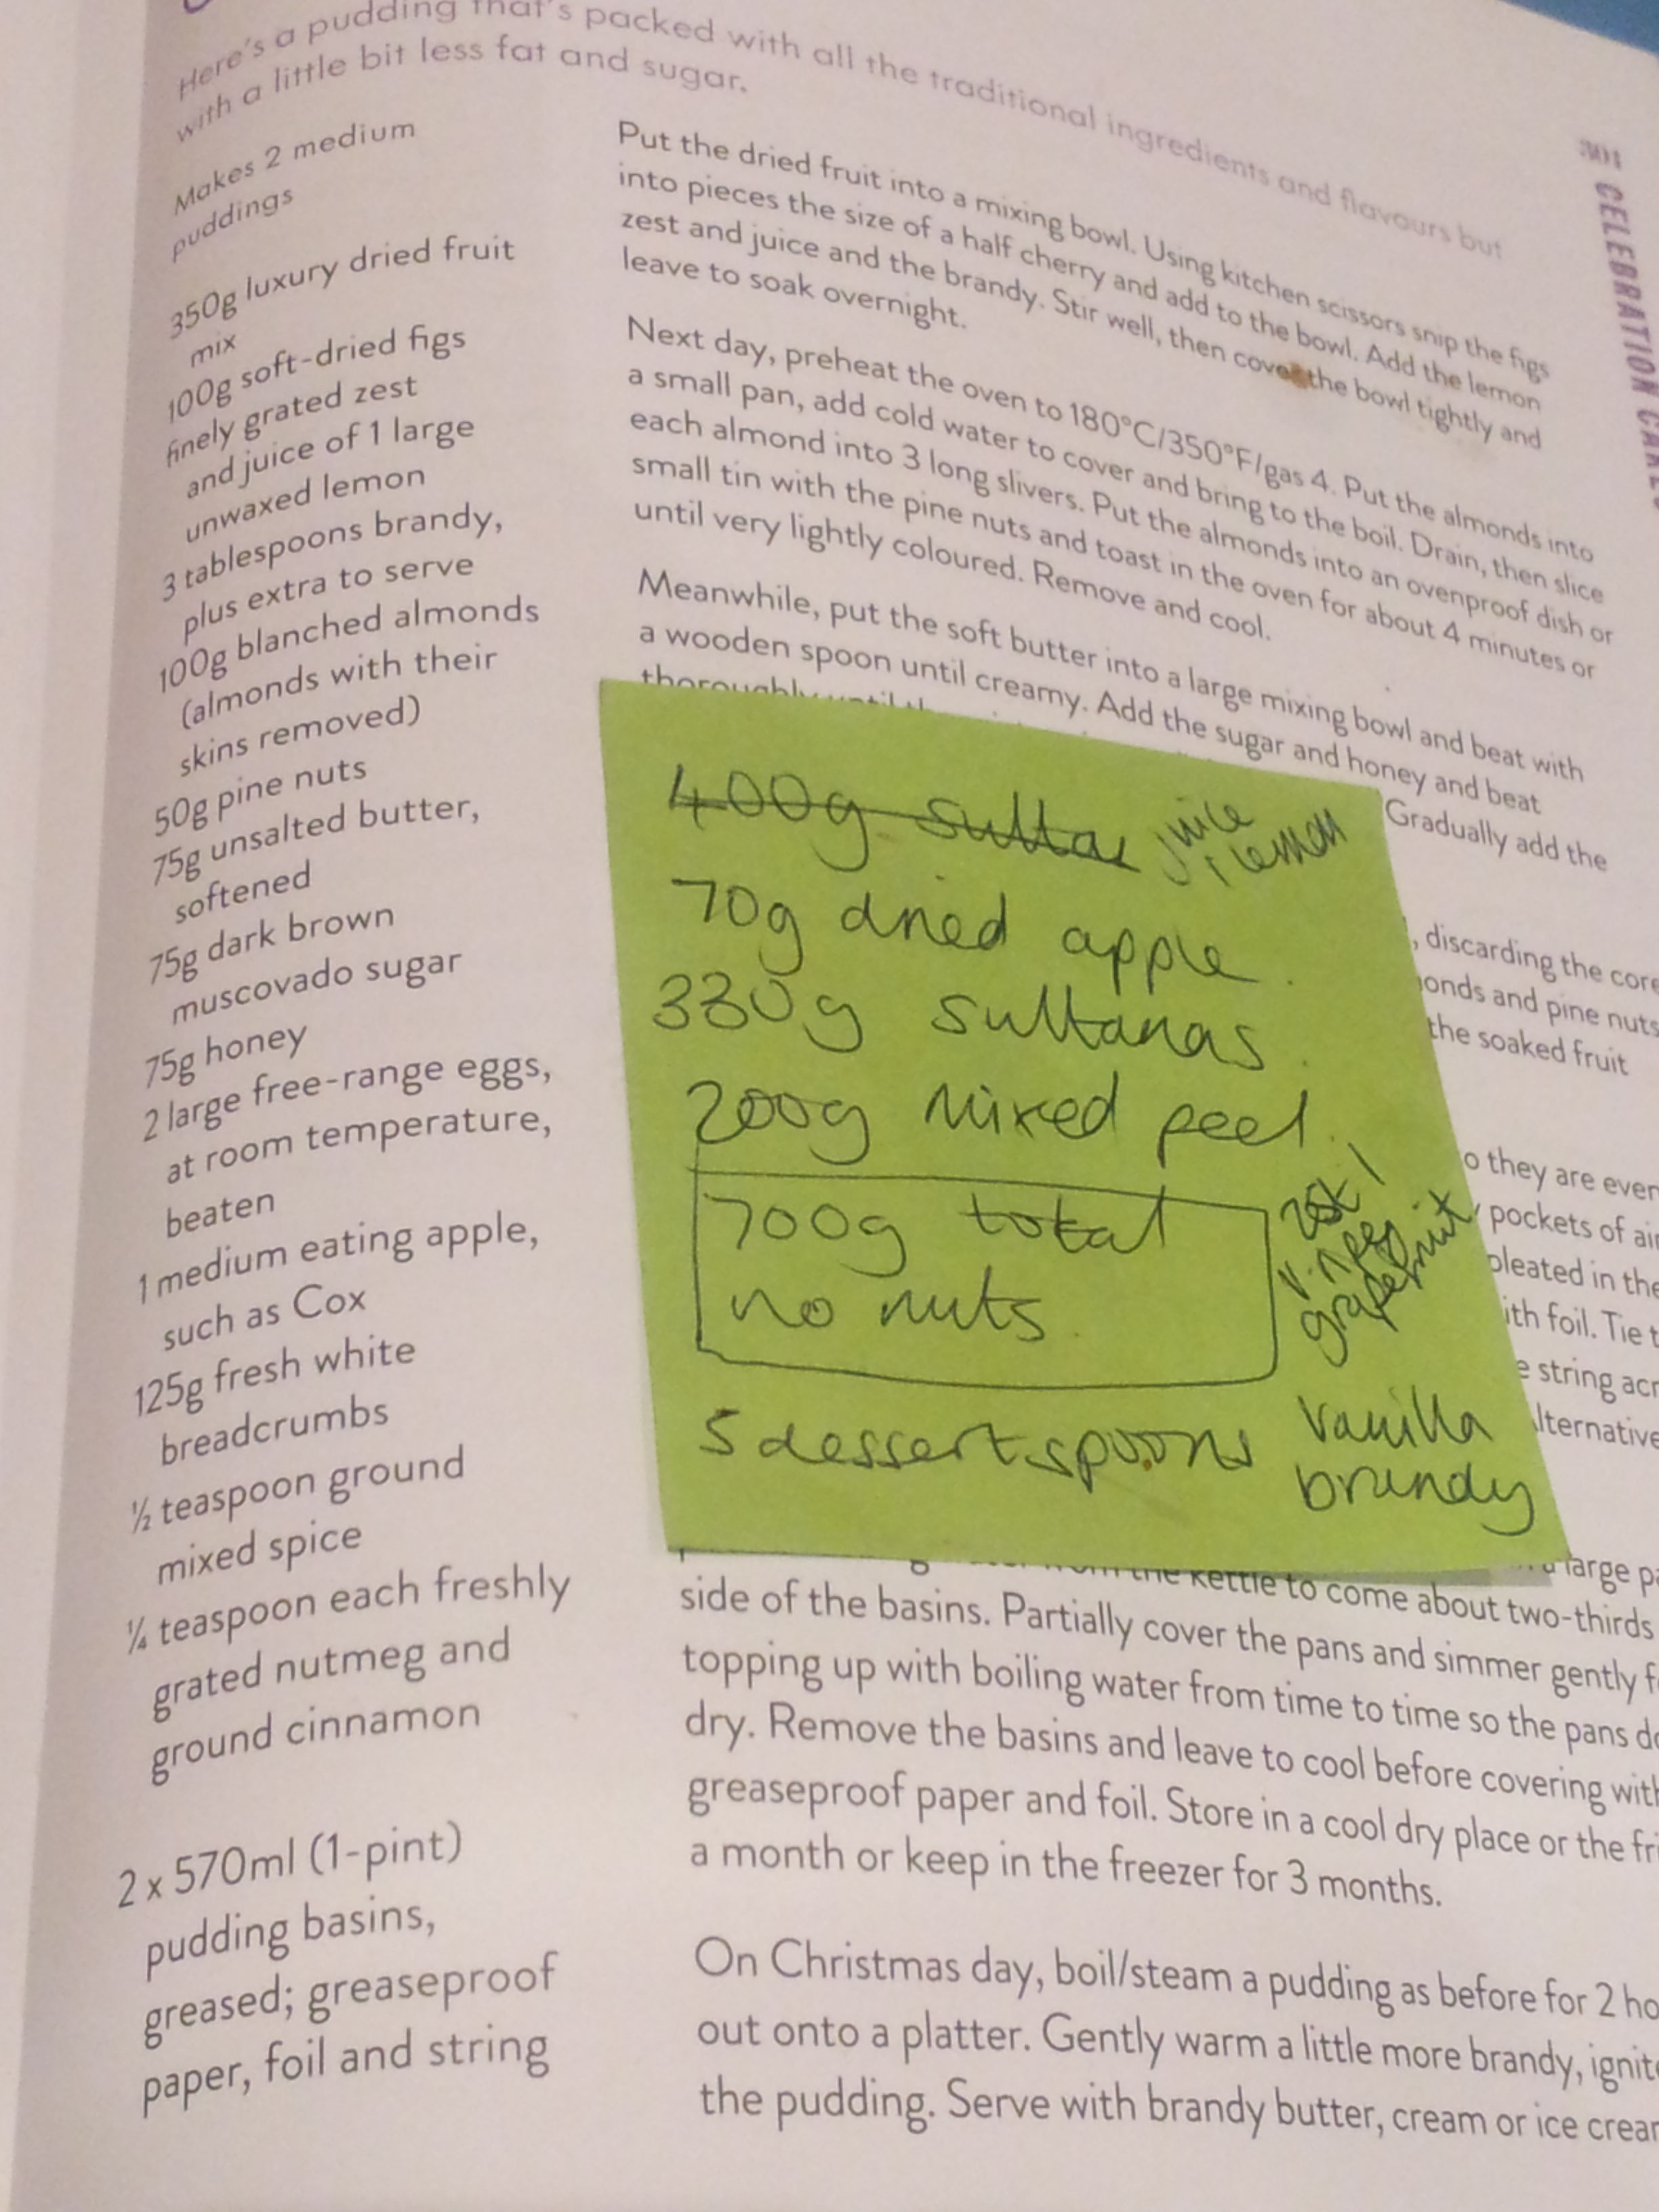 Here's a pudding that's packed with all the traditional ingredients and flavours but
with a little bit less fat and sugar.
Makes 2 medium
puddings
350g luxury dried fruit
mix
100g soft-dried figs
finely grated zest
and juice of 1 large
unwaxed lemon
3 tablespoons brandy,
plus extra to serve
100g blanched almonds
(almonds with their
skins removed)
50g pine nuts
75g unsalted butter,
softened
75g dark brown
muscovado sugar
75g honey
2 large free-range eggs,
at room temperature,
beaten
1 medium eating apple,
such as Cox
125g fresh white
breadcrumbs
½ teaspoon ground
mixed spice
¼ teaspoon each freshly
grated nutmeg and
ground cinnamon
2 x 570ml (1-pint)
pudding basins,
greased; greaseproof
paper, foil and string
Put the dried fruit into a mixing bowl. Using kitchen scissors snip the figs
into pieces the size of a half cherry and add to the bowl. Add the lemon
zest and juice and the brandy. Stir well, then cover the bowl tightly and
leave to soak overnight.
Next day, preheat the oven to 180°C/350°F/gas 4. Put the almonds into
a small pan, add cold water to cover and bring to the boil. Drain, then slice
each almond into 3 long slivers. Put the almonds into an ovenproof dish or
small tin with the pine nuts and toast in the oven for about 4 minutes or
until very lightly coloured. Remove and cool.
Meanwhile, put the soft butter into a large mixing bowl and beat with
a wooden spoon until creamy. Add the sugar and honey and beat
thoroughly until
Gradually add the
, discarding the core
onds and pine nuts
the soaked fruit
o they are even
pockets of air
pleated in the
ith foil. Tie t
e string acr
lternative
400g sultan
juice
1 lemon
70g dried apple
330g sultanas
200g mixed peel
700g total
no nuts
zest 1
grapefruit
5 dessertspoons
vanilla
brandy
large pa
the kettle to come about two-thirds
side of the basins. Partially cover the pans and simmer gently f
topping up with boiling water from time to time so the pans do
dry. Remove the basins and leave to cool before covering with
greaseproof paper and foil. Store in a cool dry place or the fri
a month or keep in the freezer for 3 months.
On Christmas day, boil/steam a pudding as before for 2 ho
out onto a platter. Gently warm a little more brandy, ignite
the pudding. Serve with brandy butter, cream or ice crear
CELEBRATION CAKES